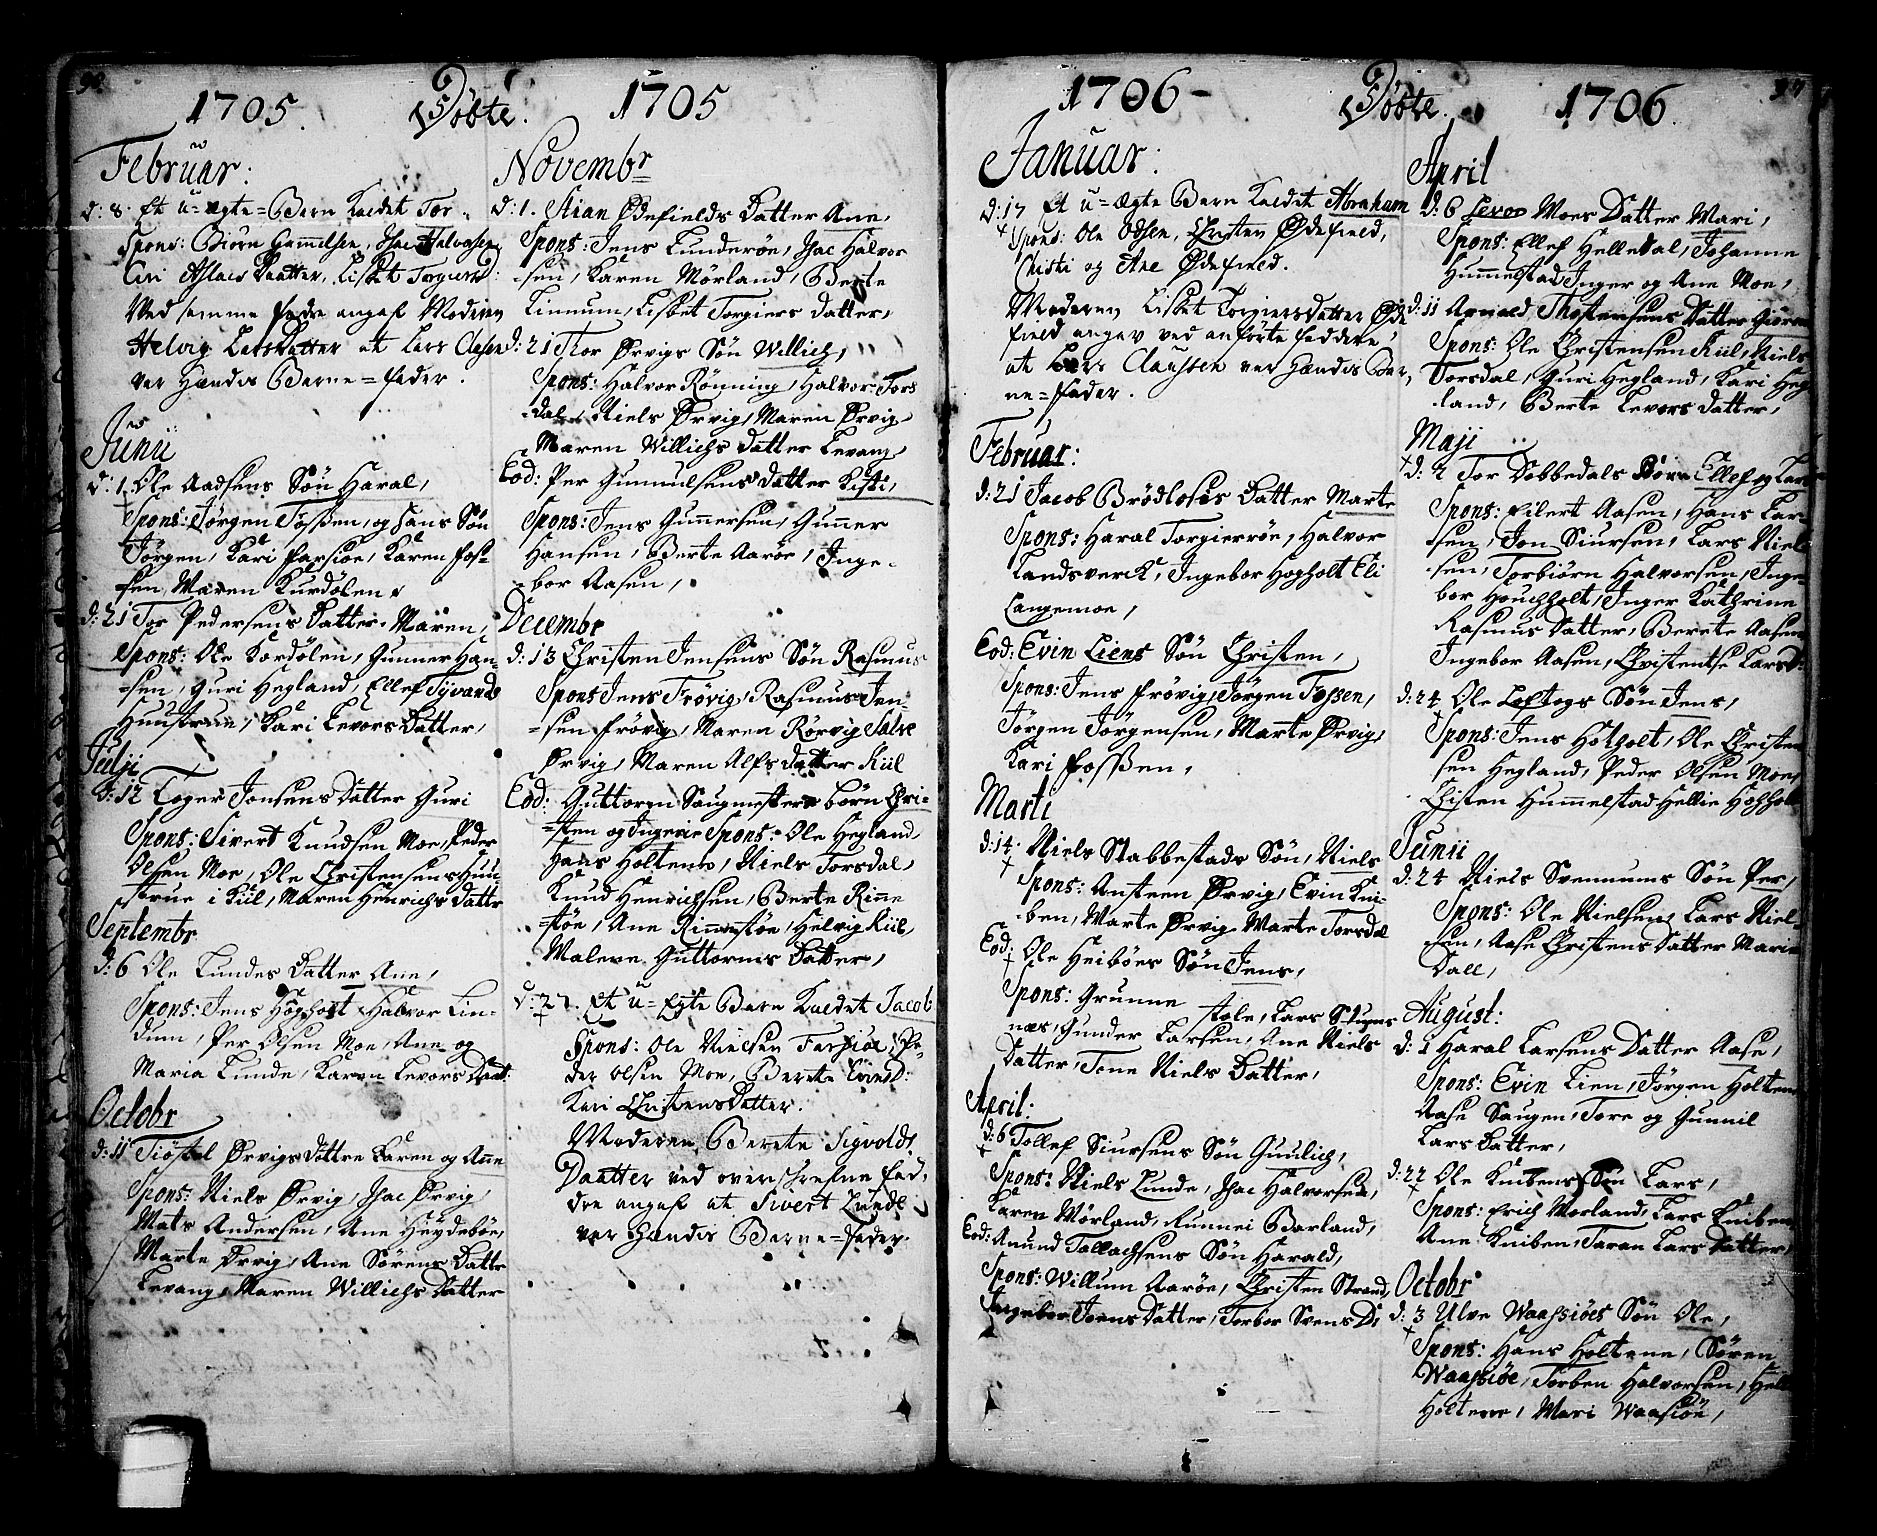 1705 Döbte. 1705
Februar:
d: 8. Et u=ægte=Barn kaldet Tor.
Spons: Biörn Gammelsen, Isac Halvorsen
Kari Aslacs Daatter, Lisbet Torgiers D:
Ved samme fadre angaf Moderen
Helvig LarsDatter at Lars Clasen
var hendis Barne=fader.
Junii
d: 1. Ole Aadsens Sön Haral,
Spons: Jörgen Fossen, og hans Sön
Jörgen, Kari Farsiöe, Karen Fos-
sen, Maren Kurdölen
d: 21 Tor Pedersens Datter Maren,
Spons: Ole Kordölen, Gunner Han-
-sen, Guri Hegland, Ellef Tyvands
Huustrue, Kari Levors Datter,
Julji
d: 12 Toger Jonsens Datter Guri
Spons: Sivert Knudsen Moe, Peder
Olsen Moe, Ole Christensens Huu-
strue i Kiil, Maren Henrichs Dattr
Septembr
d: 6 Ole Lundes Datter Ane,
Spons: Jens Hogholt Halvor Lin-
dum, Per Olsen Moe, Ane og
Maria Lunde, Karen Levors Daat:
Octobr
d: 11 Tiöstel Örvigs Döttre Karen og Anne
Spons: Niels Örvig, Isac Örvig,
Mats Andersen, Ane Heydeböe,
Marte Örvig, Ane Sörens Dattr
Levang, Maren Willichs Datter
Novembr
d: 1. Stian Ödefields Datter Ane,
Spons: Jens Lunderöe, Isac Halvor
-sen, Karen Mörland, Berte
Linnum, Lisbet Torgiers datter,
d: 21 Thor Örvigs Sön Willich,
Spons: Halvor Rönning, Halvor Tors
-dal, Niels Örvig, Maren Örvig,
Maren Willichs datter Levang,
Eod: Per Gunnulsens datter Kisti,
Spons: Jens Gunnersen, Gunner
Hansen, Berte Aaröe, Inge-
-bor Aasen,
Decembr
d: 13 Christen Jensens Sön Rasmus
Spons Jens Frövig, Rasmus Jen-
-sen frövig, Maren Rörvig Salve
Örvig, Maren Alfs datter Kiil
Eod: Guttorm Saugmesters börn Chri-
-sten og Ingerie Spons: Ole Hegland,
Hans Holtene, Niels Torsdal,
Knud Henrichsen, Berte Rinne
-stöe, Ane Rinnestöe, Helvig Kiil,
Malene Guttorms Datter,
d: 27. Et u=Egte Barn kaldet Jacob
Spons: Ole Nielsen Farsiöe, Pe-
der Olsen Moe, Berete EvensD:
Kari Christens Datter.
Moderen Berete Sigvolds
Daatter ved overschrefne fad,
dre angaf at Sivert Lunde
var hendis Barne=fader.
1706- Döbte. 1706
Januar:
d: 17 Et u=Ægte Barn kaldet Abraham
Spons: Ole Odsen, Christen Ödefield,
Christi og Ane Ödefield.
Moderen Lisbet Torgiersdatter Öde
field angav ved anförte faddere,
at Lars Claussen var hendis Bar,
ne=fader.
Februar:
d: 21 Jacob Brödlosis Datter Marte
Spons: Haral Torgierröe, Halvor
Landsverck, Ingebor Hogholt Eli
Langemoe,
Eod: Evin Liens Sön Christen,
Spons: Jens frövig, Jörgen Fossen,
Jörgen Jörgensen, Marte Örvig,
Kari Fossen,
Marti
d: 14. Niels Stabbestads Sön, Niels
Spons: Ansteen Örvig, Evin Kni-
ben, Marte Örvig, Marte Torsdal
Eod: Ole Heiböes Sön Jens,
Spons: Grunne stole, Lars Stugenes
næs, Gunder Larsen, Ane Niels
Datter, Tone Niels Datter,
April:
d: 6 Tollef Siursens Sön Guulich,
Spons: Niels Lunde, Isac Halvorsen,
Karen Mörland, Runnei Barland,
Eod: Anund Tollachsens Sön Harald,
Spons: Willum Aaröe, Christen Strand,
Ingebor JoensDatter, Torbor SvensD:
April
d: 6 Levor Moes Datter Mari,
Spons: Ellef Helledal, Johanne
Hummelstad Inger og Ane Moe,
d: 11 Arnold Thostensens Datter
Spons: Ole Christensen Kiil, Niels
Torsdal, Guri Hegland, Kari Heg
land, Berte Levors datter,
Maji
d: 2 Tor Dobbedals Börn Ellef og Lars
Spons: Eilert Aasen, Hans Lar-
-sen, Jon Siursen, Lars Niel
sen, Torbiörn Halvorsen, Inge-
bor Houchholt, Inger Kathrine
Rasmus Datter, Berete Aasen
Ingebor Aasen, Christense LarsD:
d: 24 Ole Loftogs Sön Jens,
Spons: Jens Hotholt, Ole Christen
sen Hegland, Peder Olsen Moe,
Christen Hummelstad Hellie Hogholt
Junii
d: 24 Niels Svennums Sön Per,
Spons: Ole Nielsen, Lars Niel-
sen, Aase Christens Datter Marie
Dall,
August:
d: 1 Haral Larsens Datter Aase,
Spons: Evin Lien, Jörgen Holtene
Aase Saugen, Tore og Gunnil
Lars Datter,
d: 22 Ole Knibens Sön Lars,
Spons: Erich Morland, Lars Kniben
Ane Kniben, Taran Lars Datter,
Octobr
d: 3 Ulve Waassiöes Sön Ole,
Spons: Hans Holtene, Sören
Waassiöe, Torben Halvorsen, Hel
Holtene, Mari Waasiöe,